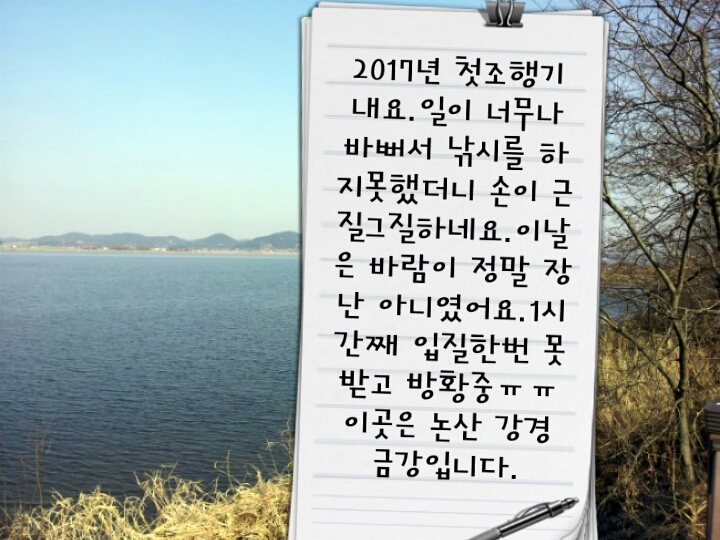 2017년 첫조행기
내요.일이 너무나
바뻐서 낚시를 하
지못했더니 손이 근
질그질하네요.이날
은 바람이 정말 장
난 아니였어요.1시
간째 입질한번 못
받고 방황중ㅠㅠ
이곳은 논산 강경
금강입니다.